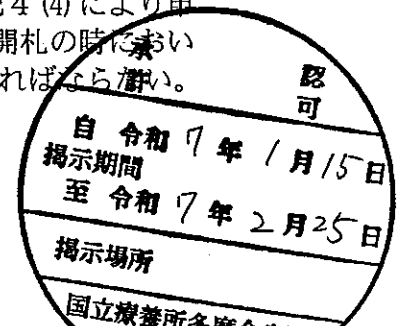 4 (4) により申
開札の時におい
ればならない。
承認
許可
自 令和 7 年 1 月 15 日
掲示期間
至 令和 7 年 2 月 25 日
掲示場所
国立療養所多磨全